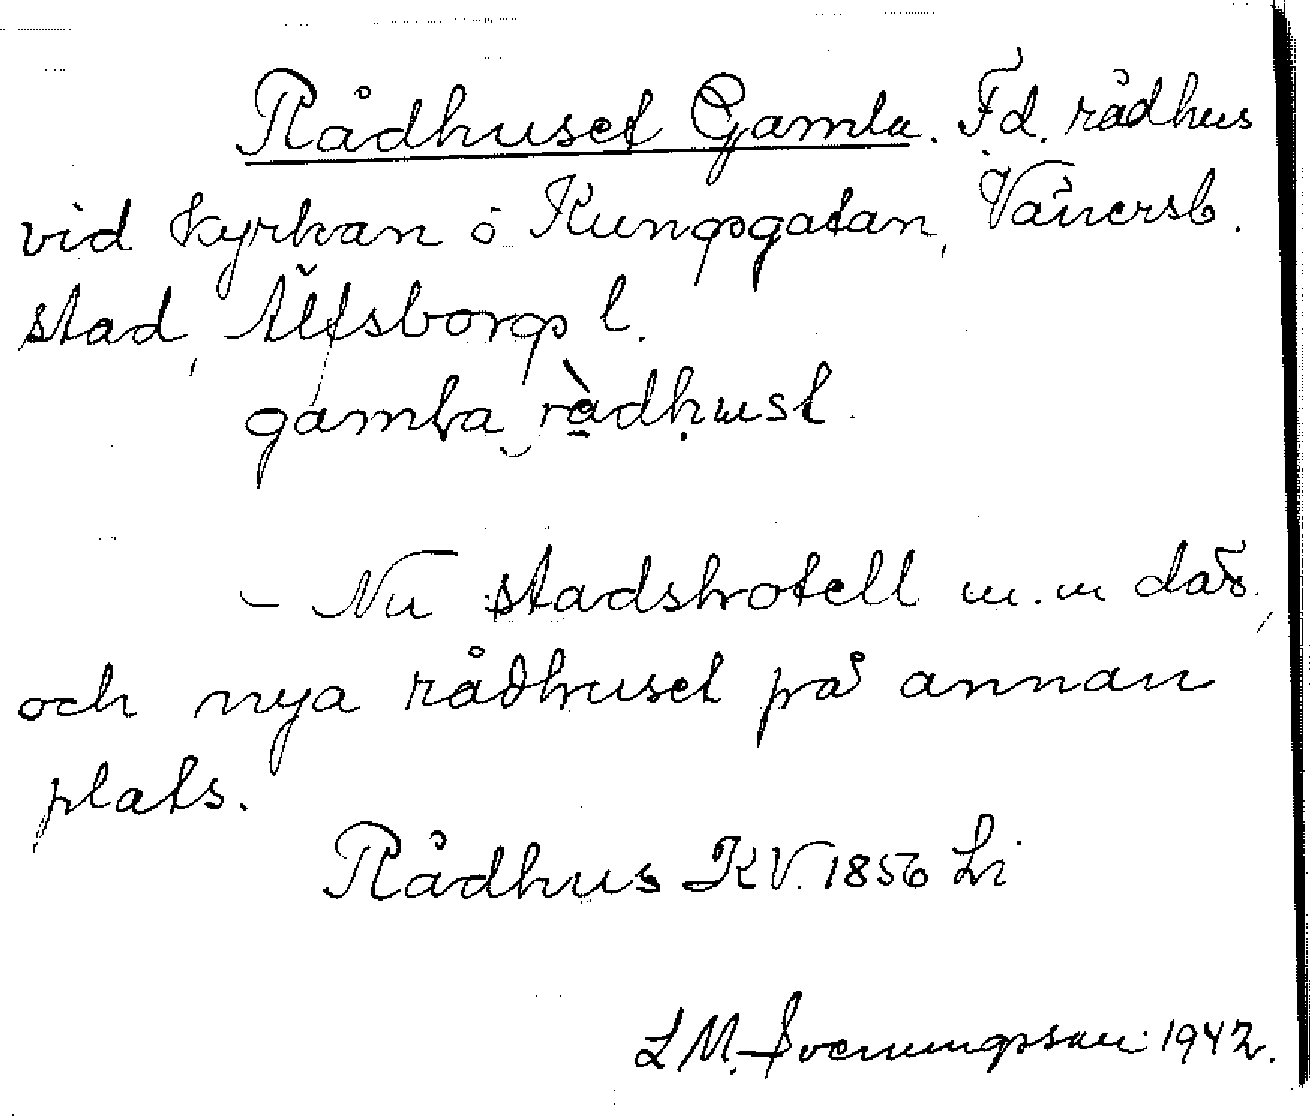 Rådhuset Gamla. Fd. rådhus
vid kyrkan o Kungsgatan, Vänersb.
stad, Älfsborgs l.
gamla rådhust.
– Nu stadshotell m.m där,
och nya rådhuset på annan
plats.
Rådhus KV. 1856 Li
L M. Svenungsson 1942.